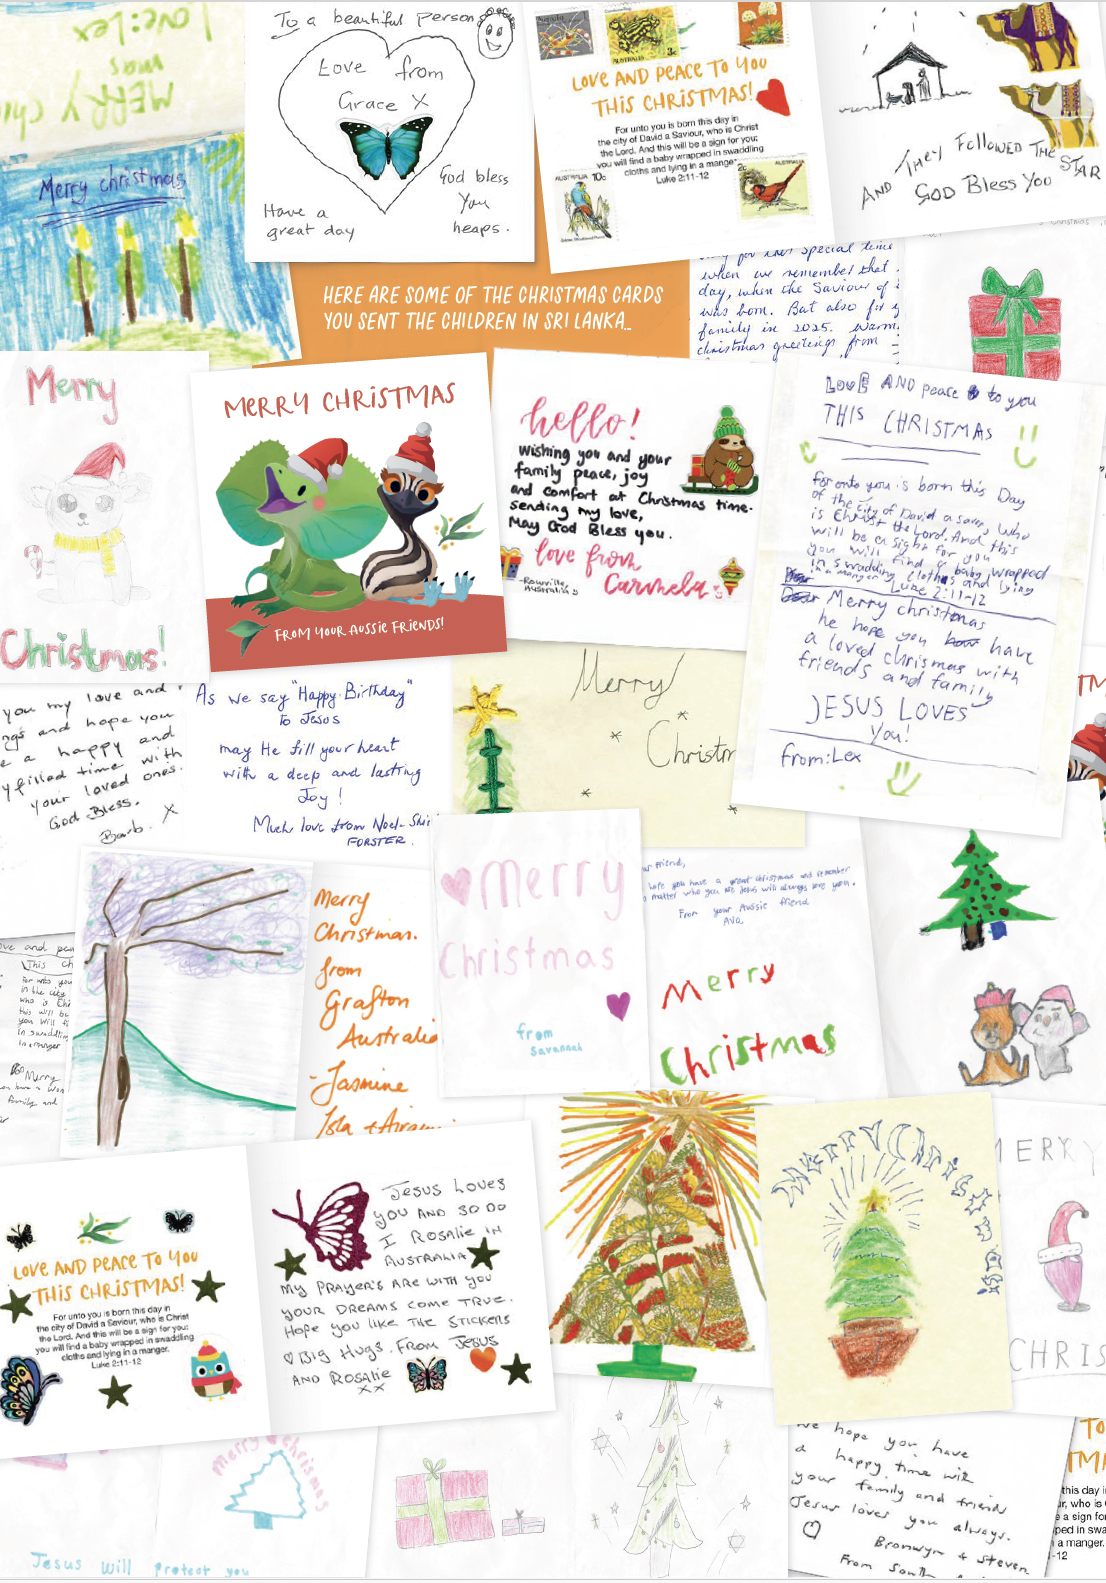 Love: Lex
MERRY Chri
mas
Merry christmas
To a beautiful person
Love from
Grace X
God bless
You
heaps.
Have a
great day
Australia
AUSTRALIA
3c
LOVE AND PEACE TO YOU
THIS CHRISTMAS!
For unto you is born this day in
the city of David a Saviour, who is Christ
the Lord. And this will be a sign for you:
you will find a baby wrapped in swaddling
cloths and lying in a manger
Luke 2:11-12
AUSTRALIA 10c
AUSTRALIA
2c
AND THEY FOLLOWED THE STAR
GOD Bless YOU
HERE ARE SOME OF THE CHRISTMAS CARDS
YOU SENT THE CHILDREN IN SRI LANKA..
for this special time
when we remember that
day, when the Saviour of
was born. But also for y
family in 2025. Warm
christmas greetings from
Merry
Christmas!
MERRY CHRISTMAS
FROM YOUR AUSSIE FRIENDS!
hello!
wishing you and your
family peace, joy
and comfort at Christmas time.
sending my love,
May God Bless you.
love from
Carmela
-Rowville,
Australia
LOVE AND peace to you
THIS CHRISTMAS
For onto you is born this Day
of the city of David a saver, who
is Christ the Lord. And this
will be a sight for you
you will find a baby wrapped
in swadding cloths and lying
in a manger Luke 2:11-12
Dear Merry christmas
he hope you have
a loved chrismas with
friends and family
JESUS LOVES
You!
from: Lex
you my love and
ngs and hope you
e a happy and
y filled time with
your loved ones.
God Bless.
Barb. X
As we say "Happy Birthday"
to Jesus
may He fill your heart
with a deep and lasting
Joy!
Much love from Noel-Shir
FORSTER.
Merry
Christm
TM
ar friend,
hope you have a great christmas and remember
o matter who you are Jesus will always love you.
From your Aussie friend
AVA
Merry
Christmas
Merry
Christmas.
from
Grafton
Australia
-Jasmine
Isla +
Merry
Christmas
from
Savannah
ove and pea
This Ch
for unto you
in the city
who is Chr
this will be
you will fi
in swaddlin
in a manger
Merry
family and
LOVE AND PEACE TO YOU
THIS CHRISTMAS!
For unto you is born this day in
the city of David a Saviour, who is Christ
the Lord. And this will be a sign for you:
you will find a baby wrapped in swaddling
cloths and lying in a manger.
Luke 2:11-12
JESUS LOVES
YOU AND SO DO
I ROSALIE IN
AUSTRALIA
MY PRAYER'S ARE WITH YOU
YOUR DREAMS COME TRUE.
HOPE YOU LIKE THE STICKERS
BIG HUGS. FROM JESUS
AND ROSALIE
XX
MERRY CHRISTMAS
MERRY
CHRIS
Merry christmas
Jesus will protect you
we hope you have
a happy time with
your family and friends
Jesus loves you always.
Bronwyn & Steven.
From South
TO
TMA
this day i
ur, who is C
e a sign for
ped in swa
a manger.
-12